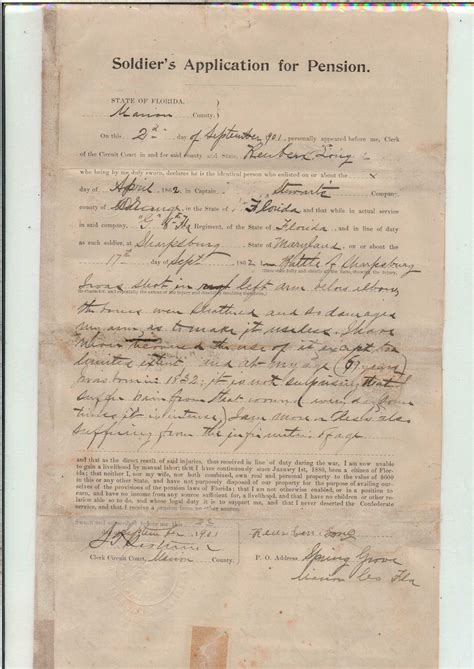 Soldier's Application for Pension.
STATE OF FLORIDA.
Marion County.
On this 2nd day of September 1901, personally appeared before me, Clerk
of the Circuit Court in and for said county and State, Reuben Long
who being by me duly sworn, declares he is the identical person who enlisted on or about the
day of April 1862 in Captain Stewarts Company
county of Orange, in the State of Florida and that while in actual service
in said company, "G" 8th Fla Regiment, of the State of Florida, and in line of duty
as such soldier, at Sharpsburg State of Maryland on or about the
17th day of Sept 1862 in Battle of Sharpsburg
I was shot in left arm below elbow,
the bones were shattered and so damaged
my arm as to make it useless. I have
never the use of it except to a
limited extent and at my age (69 years)
was born in 1832; it is not surprising that I
suffer pain from that wound
times I am more or less also
suffering from the infirmities of age
and that as the direct result of said injuries, thus received in line of duty during the war, I am now unable
to gain a livelihood by manual labor; that I have continuously since January 1st, 1880, been a citizen of Flor-
ida; that neither I, or my wife, nor both combined, own real and, personal property to the value of $600
in this or any other State, and have not purposely disposed of our property for the purpose of availing our-
selves of the provisions of the pension laws of Florida; that I am not otherwise enabled, or in a position to
earn, and have no income from any source sufficient for, a livelihood, and that I have no children or other re-
lation able so to do, and whose legal duty it is to support me, and that I never deserted the Confederate
service, and I desire to procure a pension.
Sworn to and subscribed before me this 2d
September 1901
Clerk Circuit Court, Marion County.
Reuben Long
P. O. Address, Spring Grove
Marion Co Fla